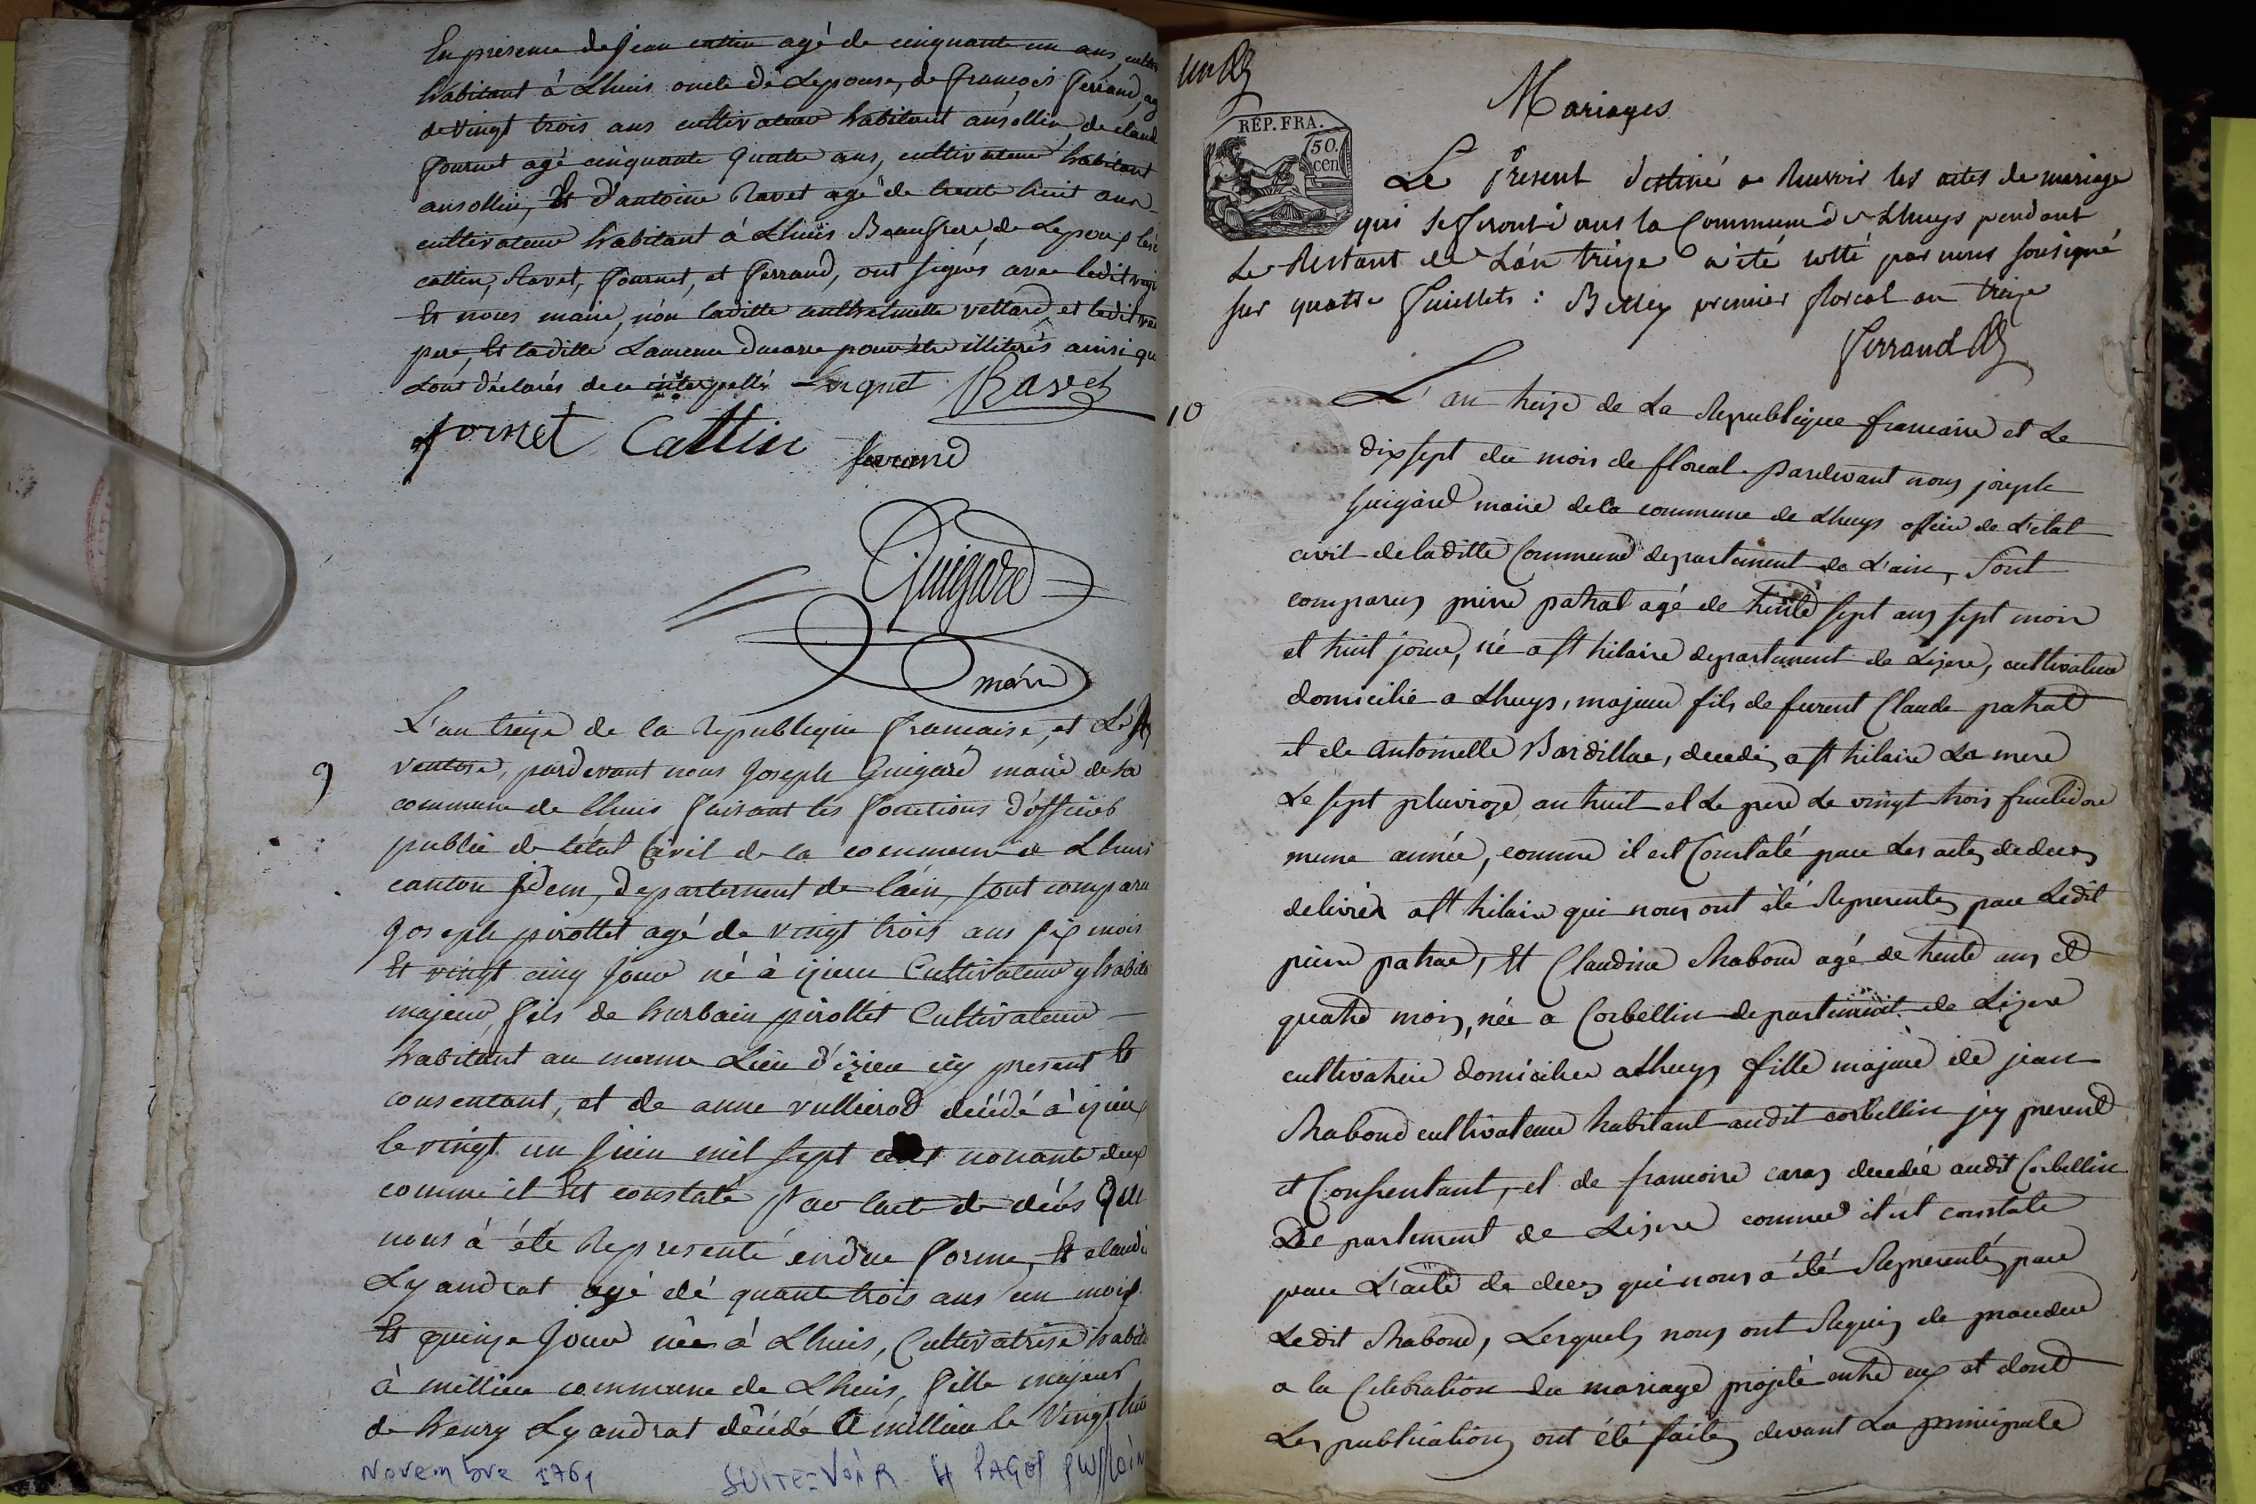 En presence de jean cattin agé de cinquante un ans
habitant à Lhuis oncle de Lepouse, de françois ferrand
de vingt trois ans cultivateur habitant ansollin, de claud
fournet agé cinquante quatre ans, cultivateur habitant
ansollin, Et d'antoine Ravet agé de trente huit ans
cultivateur habitant à Lhuis Beaufrere de Lepoux
cattin, Ravet, fournet, et ferrand, ont signés avec ledit
Et nous maire, non laditte vettard et ledit
pere, Et laditte ducarre pour être illiterés ainsi
Lont déclarés de ce interpellé Ravet
fornet Cattin ferrand
Guigard
maire
9
L'an treize de la Republique francaise, et Le
ventose, pardevant nous Joseph Guigard maire de la
commune de Lhuis faisant les fonctions d'officier
public de l'état Civil de la commune de Lhuis
canton idem, departement de l'ain, sont comparu
Joseph pirottet agé de vingt trois ans six mois
Et vingt cinq jour né à izieu Cultivateur y habit
majeur, fils de hurbain pirottet Cultivateur
habitant au meme Lieu d'izieu icy present Et
consentant, et de anne vullierod décédé à izieu
le vingt un juin mil sept cent nonante deux
comme il Est constaté par lacte de décés qui
nous à été Representé endue forme, Et claudi
Lyandrat agé de quarante trois ans un mois
Et quinze Jour née à Lhuis, Cultivatrise habit
à millieu commune de Lhuis, fille majeur
de henry Lyandrat décédé à millieu le vingt
Novembre 1761 SUITE-VOIR 4 PAGES PLUS LOIN
Mariages
RÉP. FRA.
50.
cen
Le present destiné a Recevoir les actes de mariage
qui se feront dans la Commune de Lhuys pendant
Le Restant de L'an treize a été cotté par nous sousigné
sur quatre feuillets : Belley premier floreal an treize
ferrand
10
L'an treize de La Republique francaise et Le
dix sept du mois de floreal pardevant nous joseph
Guigard maire de la commune de Lhuys officier de L'etat
civil de laditte Commune departement de L'ain, Sont
comparus pierre patrat agé de trente sept ans sept mois
et huit jour, né a st hilaire departement de Lizere, cultivateur
domicilié a Lhuys, majeur fils de furent Claude patrat
et de Antoinette Bardillae, decedés a st hilaire La mere
Le sept pluviose an huit et Le pere Le vingt trois fructidore
meme année, comme il est Constaté par Les actes de deces
delivrés a st hilaire qui nous ont été Representés par Ledit
pierre patrat, Et Claudine Rabond agé de trente ans et
quatre mois, née a Corbellin departement de Lizere
cultivatrice domiciliee a Lhuys fille majeure de jean
Rabond cultivateur habitant audit corbellin jcy present
et Consentant, et de francoise caras decedée audit Corbellin
Departement de Lizere comme il est constaté
par L'acte de deces qui nous a été Representé par
Ledit Rabond, Lesquels nous ont Requis de proceder
a la Celebration du mariage projeté entre eux et dont
Les publications ont été faites devant La principale